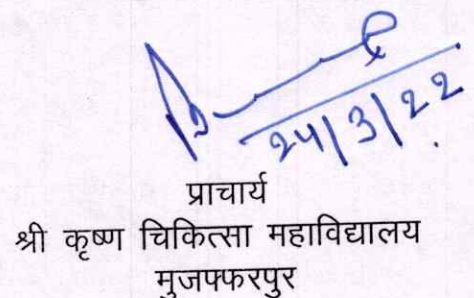 24/3/22
प्राचार्य
श्री कृष्ण चिकित्सा महाविद्यालय
मुजफ्फरपुर